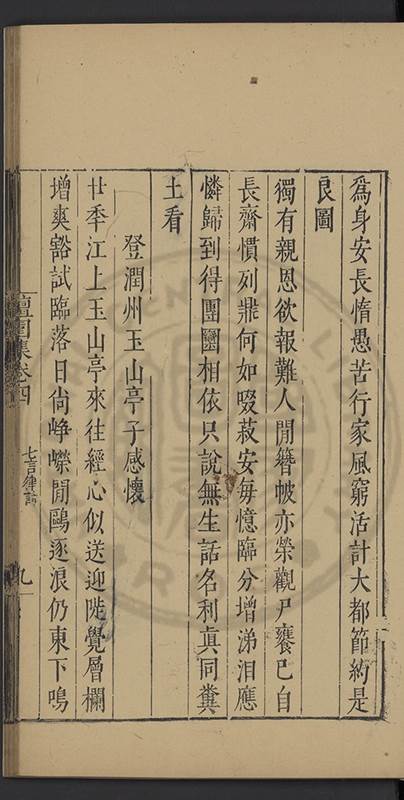 爲身安長惰愚苦行家風窮活計大都節約是
良圖
獨有親恩欲報難人閒簪帔亦榮觀尸饔已自
長齋慣列鼎何如啜菽安每憶臨分增涕泪應
憐歸到得團圞相依只說無生話名利眞同糞
土看
登潤州玉山亭子感懷
廿季江上玉山亭來往經心似送迎陡覺層欄
增爽豁試臨落日尙崢嶸閒鷗逐浪仍東下鳴
集卷四
七言律詩
九